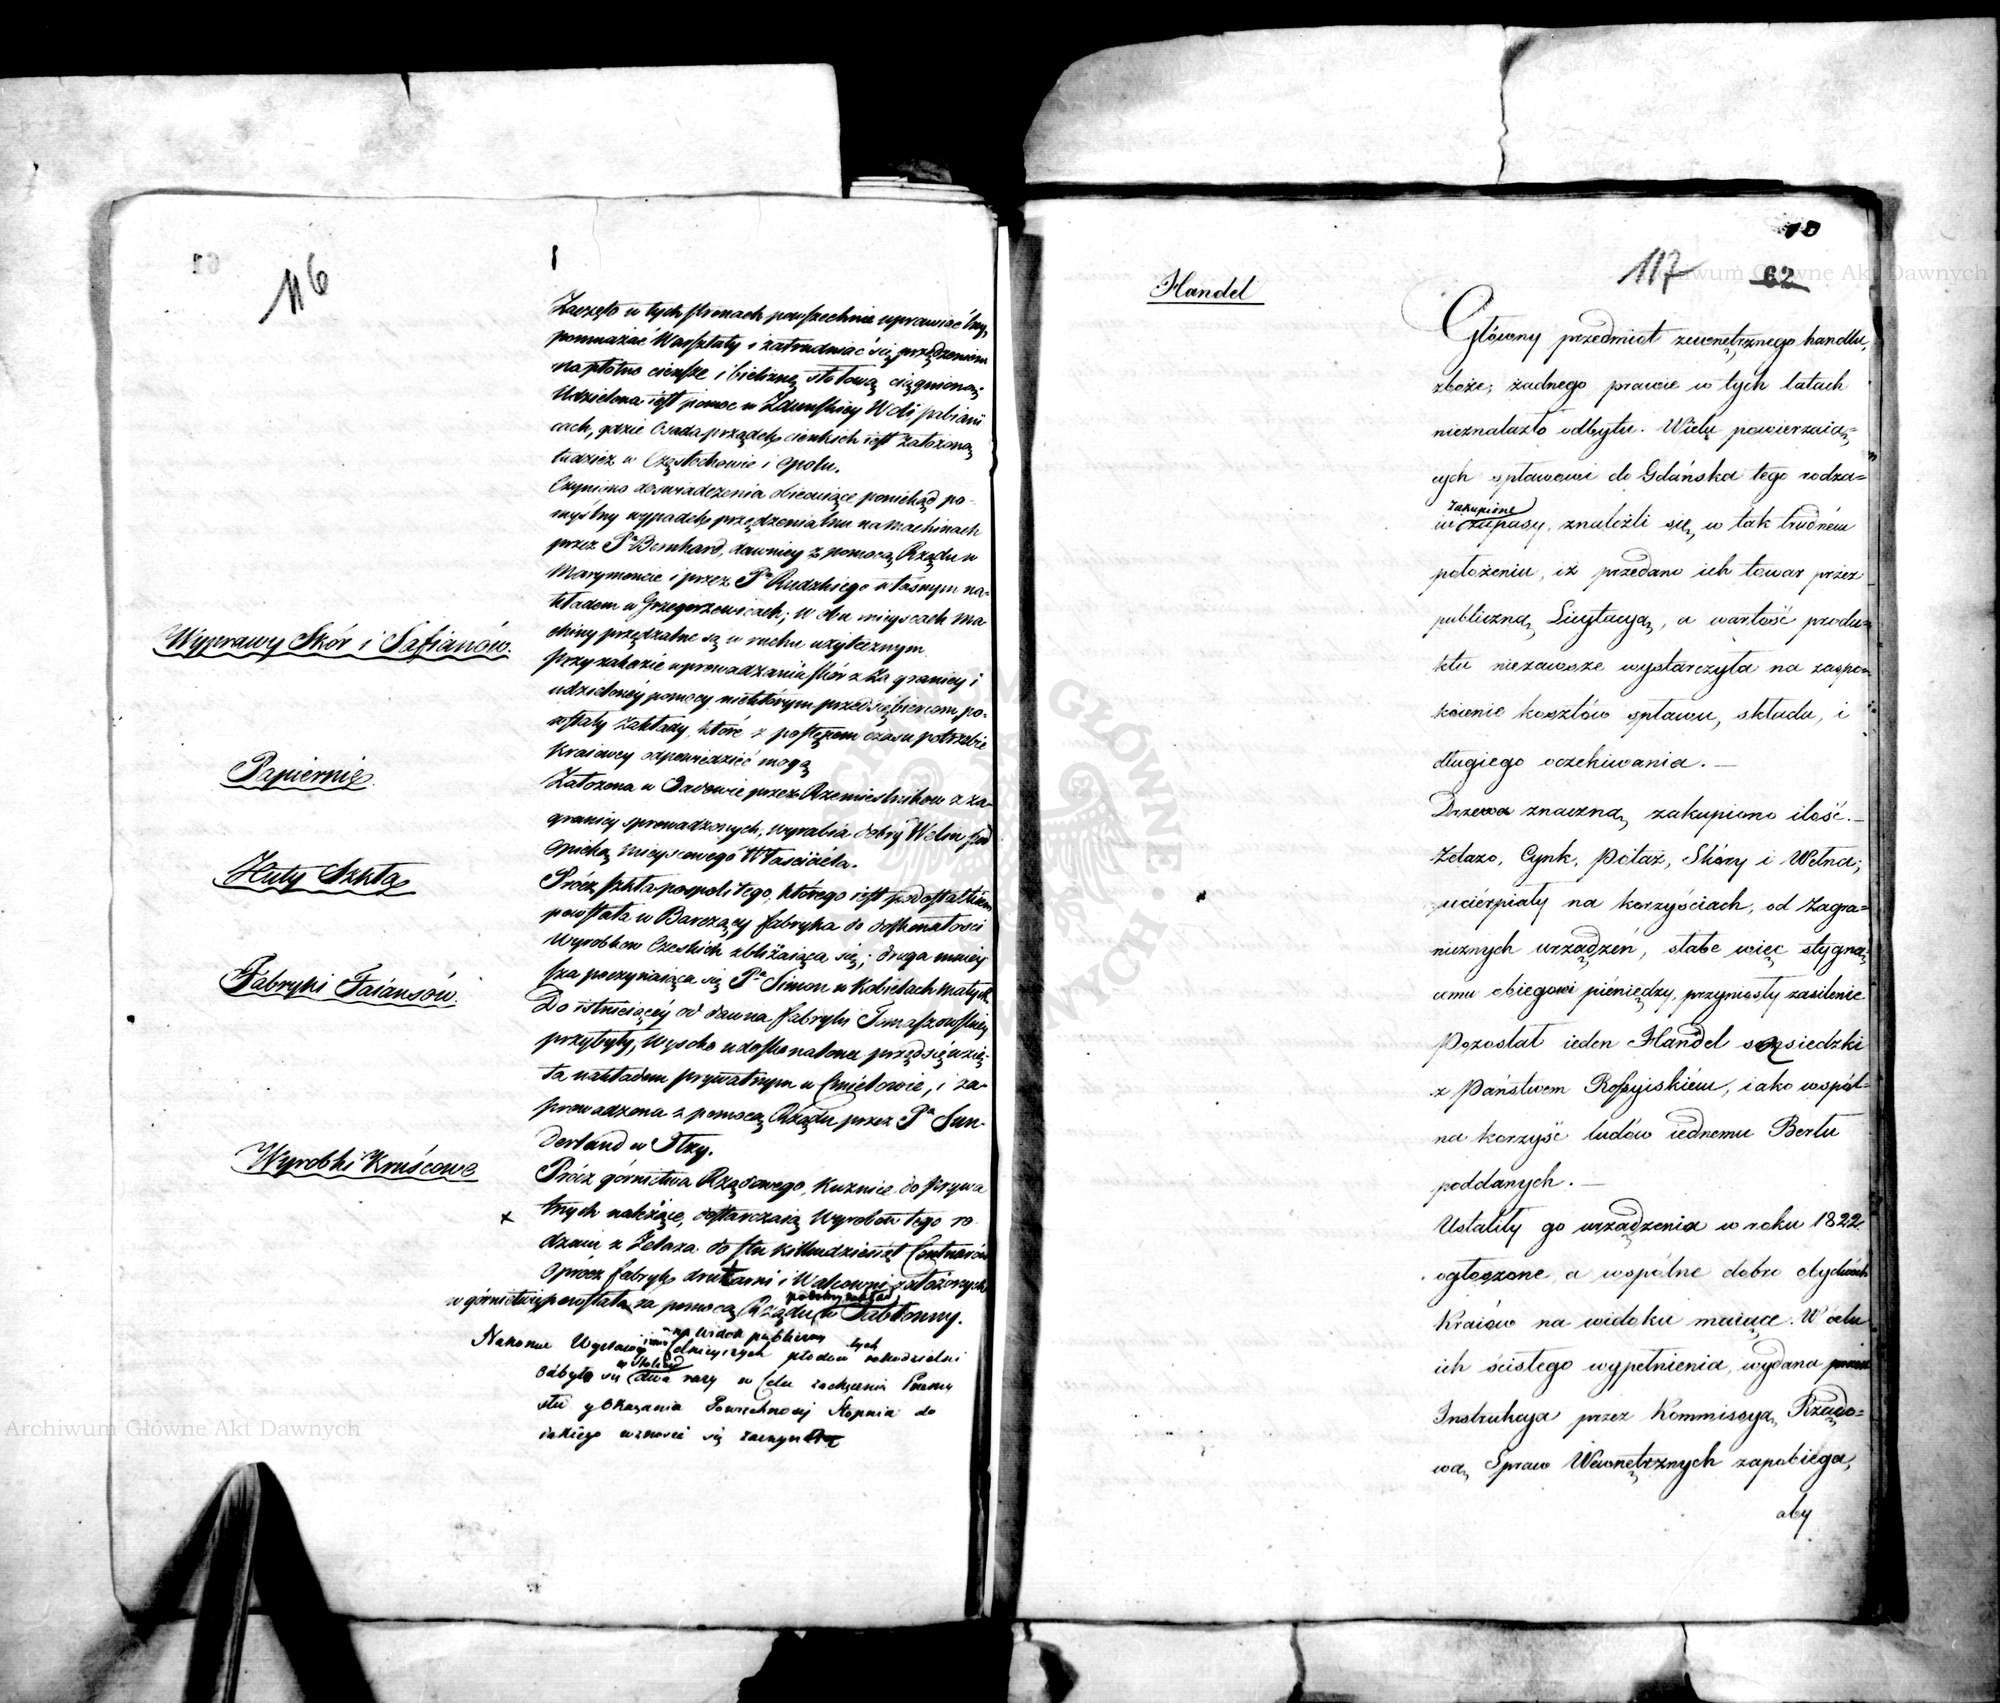 116
Zaczęto w tych stronach powszechnie uprawiać Len,
pomnażać Warsztaty i zatrudniać się przędzeniem
na płótno cieńsze i bieliznę stołową ciągnioną.
Udzielona iest pomoc w Zduńskiey Woli pabiani
cach, gdzie Osada prządek cienkich iest założona,
tudzież w Częstochowie i Opolu.
Czyniono doswiadczenia obiecuiące poniekąd po-
myślny wypadek przędzenia lnu na machinach
przez Pa Bernhard, dawniey z pomocą Rządu w
Marymoncie i przez Pa Rudzkiego własnym na-
kładem w Grzegorzewicach; w obu mieyscach ma
chiny przędzalne są w ruchu użytecznym
Wyprawy Skór i Safianów.
przy zakazie wprowadzania skór z za granicy i
udzieloney pomocy niektórym przedsiębiercom, po-
wstały zakłady, które z postępem czasu potrzebie
kraiowey odpowiedzieć mogą
Papiernie
Założona w przez Rzemieslników z za-
granicy sprowadzonych, wyrabia dobry Welin pod
opieką mieyscowego Właściciela.
Huty Szkła
Prócz szkła pospolitego, którego iest podostatkiem
powstała w Barczący fabryka do doskonałości
wyrobków Czeskich zbliżaiąca się; druga mniey
sza poczynaiąca się Pa Simon w Kobiełach małych
Fabryki Faiansów.
Do istnieiącéy od dawna fabryki Tomaszowskiey
przybyły, wysoko udoskonalona przedsięwzię-
ta nakładem prywatnym w Cmielowie, i za-
prowadzona z pomocą Rządu przez Pa Sun-
derland w Iłży.
Wyrobki Kruścowe
Prócz górnictwa Rządowego, kuźnice do prywa
tnych należące, dostarczaią wyrobów tego ro-
dzaiu z żelaza do stu kilkudziesiąt Centnarów
oprócz fabryk drutarni i Walcowni założonych
w górnictwie powstała za pomocą Rządu w Jabłonny.
na widok publiczny
Nakoniec Wystawy celnieyszych płodów tych rękodzielni
w Stolicy
odbyło się dwa razy w Celu zachęcenia Przemy
słu y okazania Powszechnosci Stopnia do
iakiego wznosić się zaczyna
10
117 62
Handel
Główny przedmiot zewnętrznego handlu,
zboże; żadnego prawie w tych latach
nieznalazło odbytu. Wielu powierzaią=
cych spławowi do Gdańska tego rodza=
zakupione
iu zapasy, znaleźli się w tak trudném
położeniu, iż przedano ich towar przez
publiczną Licytacyą, a wartość produ=
ktu niezawsze wystarczyła na zaspo=
koienie kosztów spławu, składu, i
długiego oczekiwania. —
Drzewa znaczną zakupiono ilość. —
Żelazo, Cynk, Potaż, Skóry i Wełna;
ucierpiały na korzyściach, od Zagra=
nicznych urządzeń, słabe więc stygną=
cemu obiegowi pieniędzy, przyniosły zasilenie
Pozostał ieden Handel sąsiedzki
z Państwem Rossyiskiém, iako wspól=
na korzyść ludów iednemu Berłu
poddanych. —
Ustaliły go urządzenia w roku 1822
ogłoszone a wspólne dobro obydwóch
Kraiów na widoku maiące. W celu
ich ścisłego wypełnienia, wydana
Instrukcya przez Kommissyą Rządo=
wą Spraw Wewnętrznych zapobiega,
aby
Archiwum Główne Akt Dawnych
Archiwum Główne Akt Dawnych